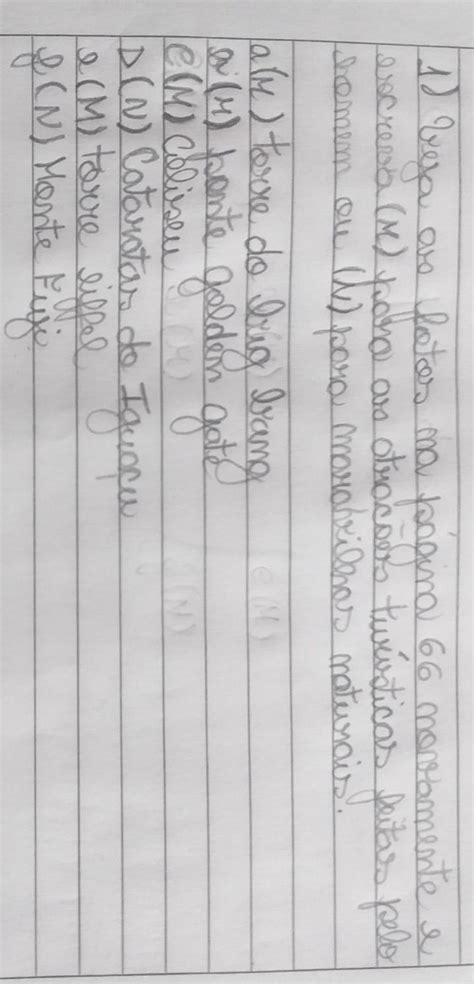 1) Veja as fotos na página 66 novamente e
escreva (M) para as atracões turísticas feitas pelo
homem ou (N) para maravilhas naturais.
a (M) torre do brig bang
a (M) ponte golden gate
c (M) Coliseu
D (N) Cataratas do Iguaçu
e (M) torre eiffel
f (N) Monte Fuji